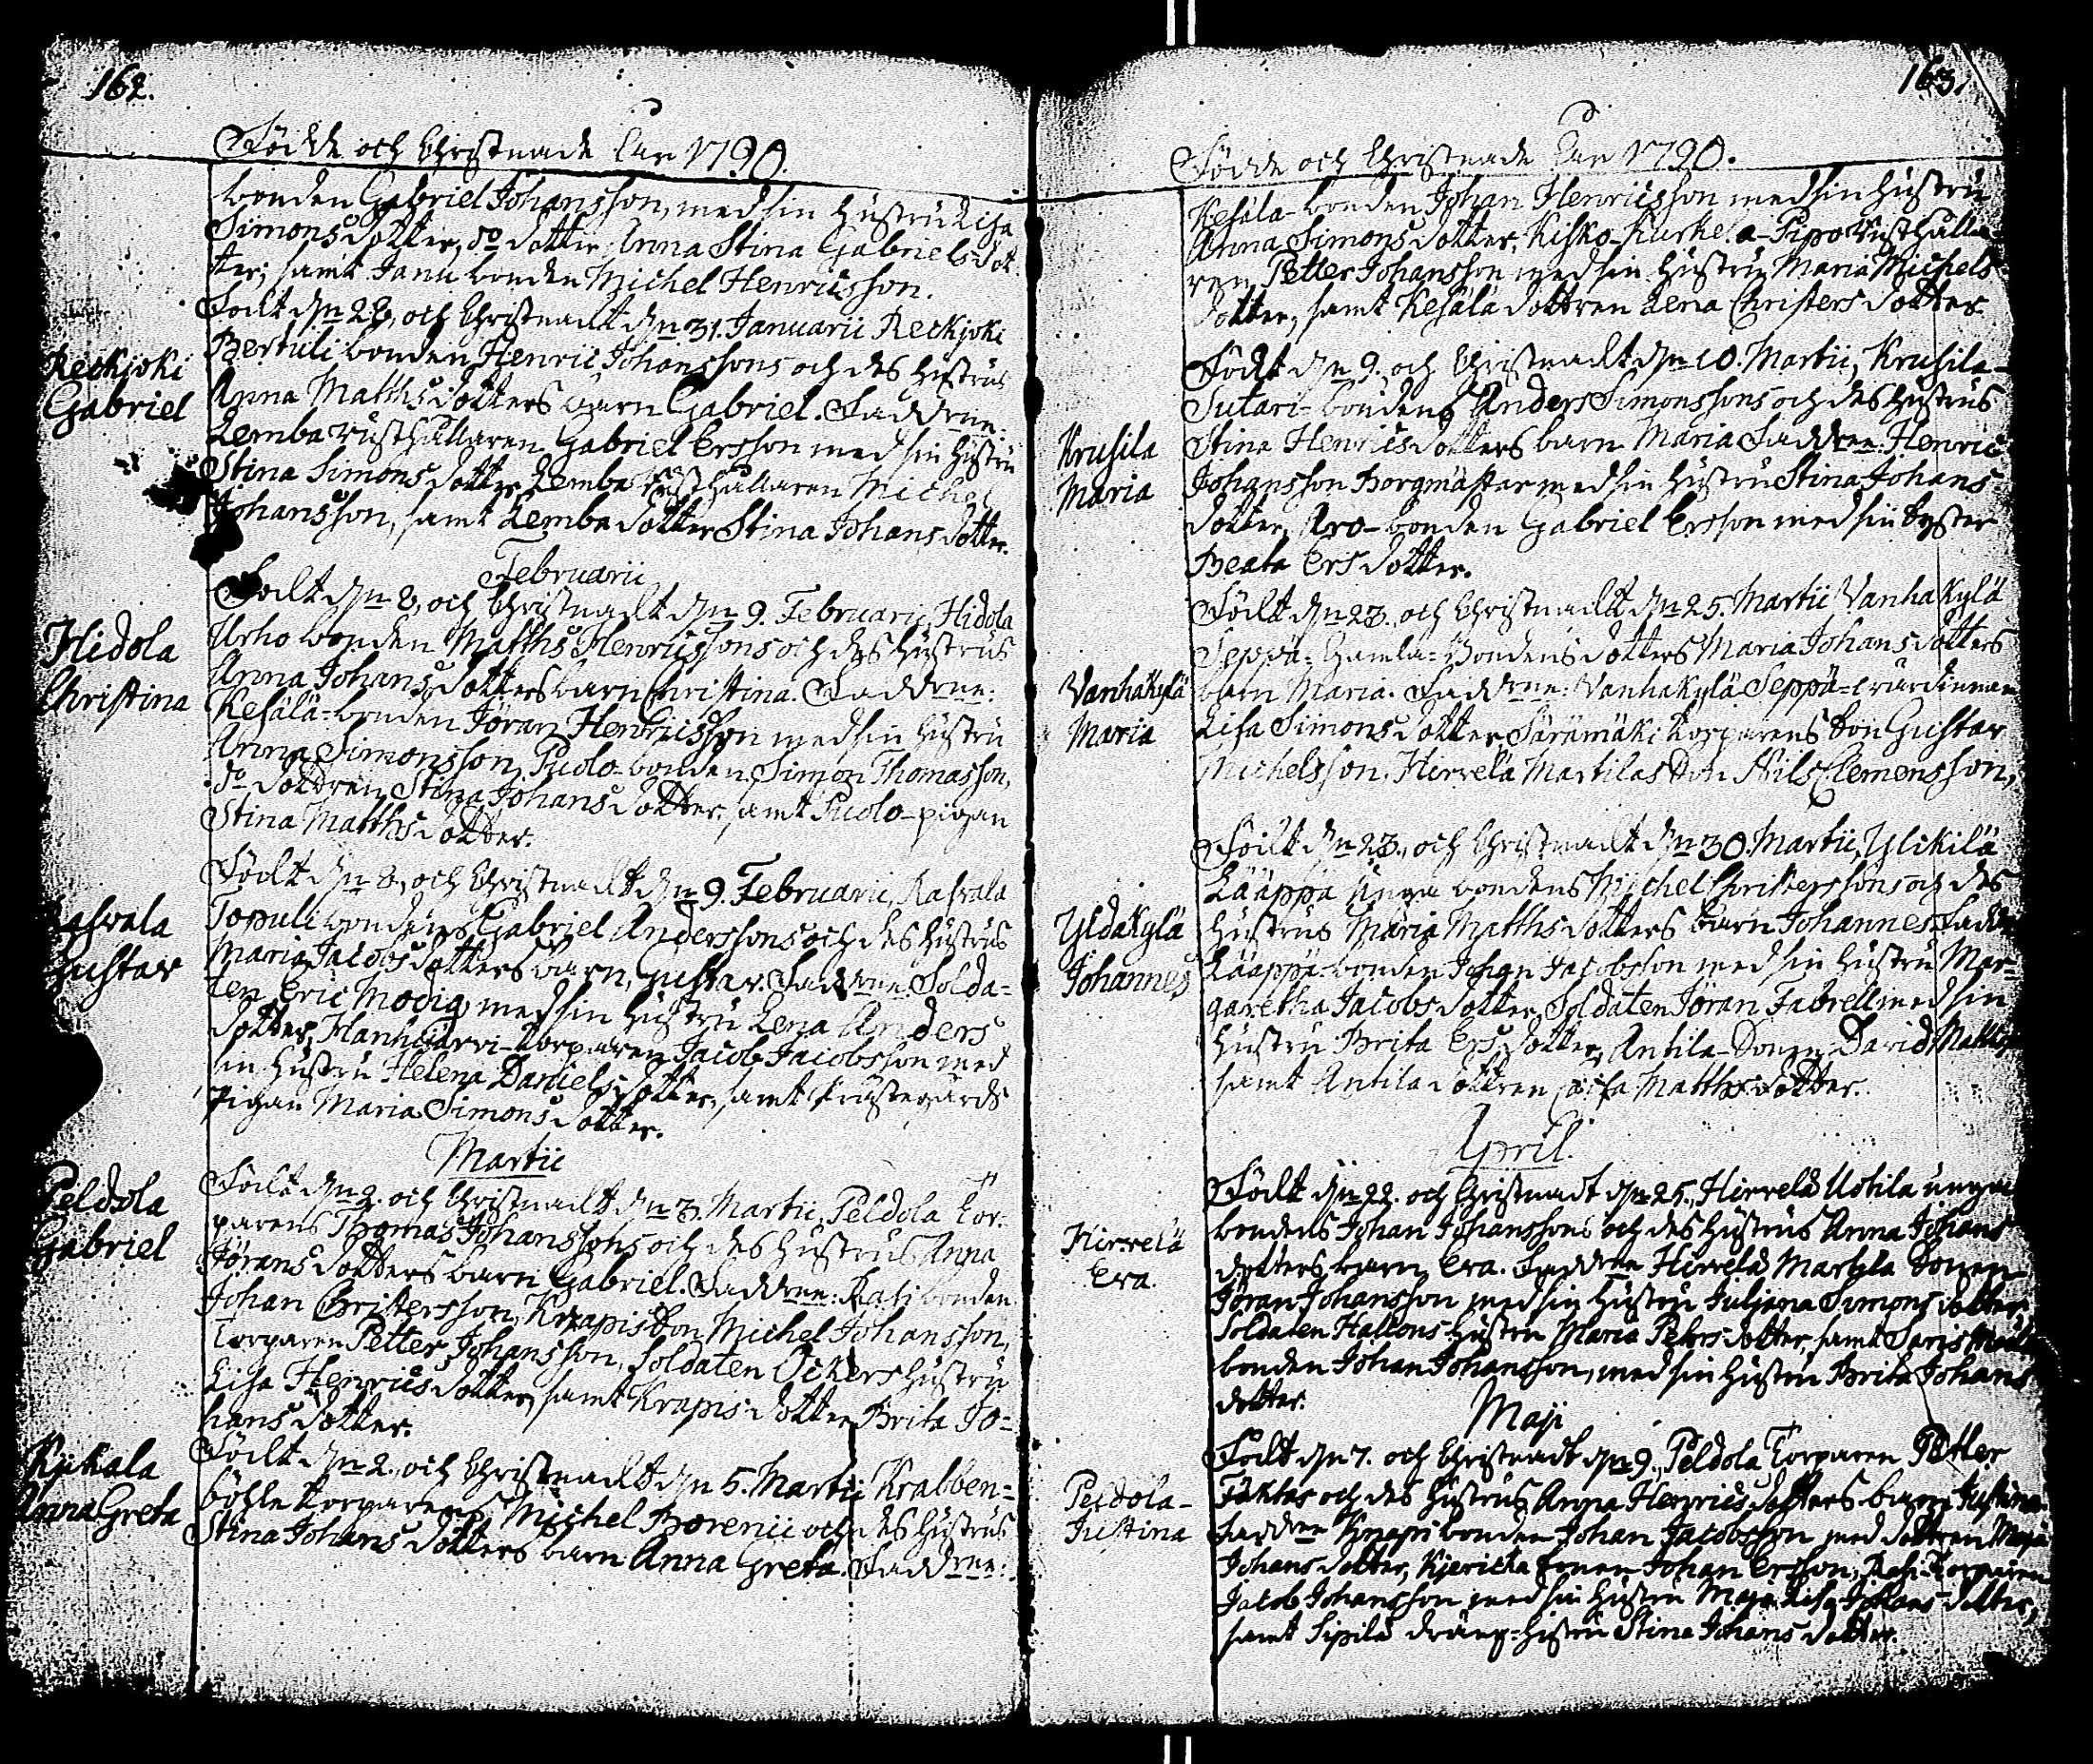 162.
Födde och Christnade Åhr 1790.
bonden Gabriel Johansson, med sin hustru Lisa
Simons dotter, do dotter Anna Stina Gabriels dot-
ter; samt Janu bonden Michel Henricsson.
Reckijoki
Gabriel
Födt d n 28, och Christnadt d n 31. Januarii Reckijoki
Bertuli bonden Henric Johanssons och des hustrus
Anna Matths dotters barn Gabriel. Faddrne:
Lemba rusthållaren Gabriel Ersson med sin hustru
Stina Simons dotter Lemba rusthållaren Michel
Johansson, samt Lemba dotter Stina Johans dotter.
Februarii
Hidola
Christina
Födt d n 8, och Christnadt d n 9. Februarii, Hidola
Urho bonden Matths Henricssons och des hustrus
Anna Johans dotters barn Christina. Faddrne:
Kesälä-bonden Jöran Henricsson med sin hustru
Anna Simonsson, Puolo-bonden Simon Thomasson,
do dottren Stina Johans dotter, samt Puolo-pigan
Stina Matths dotter.
Gustav
Födt d n 8, och Christnadt d n 9. Februarii, Rasvala
Topuli bondens Gabriel Anderssons och des hustrus
Maria Jacobs dotters barn, Gustav. Faddrne. Solda-
ten Eric Modig med sin hustru Lena Anders
dotter, Hanhijarvi-torparen Jacob Jacobsson med
sin hustru Helena Daniels dotter, samt Prästegårds
pigan Maria Simons dotter.
Martii
Peldola
Gabriel
Födt d n 2. och Christnadt d n 3. Martii, Peldola tor-
parens Thomas Johanssons och des hustrus Anna
Jörans dotters barn Gabriel. Faddrne: Rasi bonden
Johan Christersson, Krapis Son Michel Johansson,
Torparen Petter Johansson, Soldaten Öckers hustru
Lisa Henrics dotter, samt Krapis dotter Brita Jo-
hans dotter.
Kjikala
Anna Greta
Födt d n 2. och Christnadt d n 5. Martii Krabben-
böhle torparens Michel Borenii och des hustrus
Stina Johans dotters barn Anna Greta. Faddrne:
163.
Födde och Christnade Åhr 1790.
Kesäla-bonden Johan Henricsson med sin hustru
Anna Simons dotter, Kisko-Kurkela-Pipo rusthålla-
ren Petter Johansson med sin hustru Maria Michels
dotter, samt Kesälä dottren Lena Christers dotter
Krusila
Maria
Födt d n 9. och Christnadt d n 10. Martii, Krusila-
Sutari-bondens Anders Simonssons och des hustrus
Stina Henrics dotters barn Maria. Faddrne: Henric
Johansson Borgmästar med sin hustru Stina Johans
dotter, Aro-bonden Gabriel Ersson med sin syster
Beata Ers dotter.
Vanhakylä
Maria
Födt d n 23. och Christnadt d n 25. Martii Vanhakylä
Seppä-Gamla-Bondens dotters Maria Johans dotters
barn Maria. Faddrne: Vanhakylä Seppä-värdinnan
Lisa Simons dotter Särämäki torparens Son Gustav
Michelsson. Hirvelä Martilas Son Nils Clemensson,
Yldakylä
Johannes
Födt d n 23. och Christnadt d n 30. Martii, Ylikilä
Lääppä Unga bondens Michel Christerssons och des
hustrus Maria Matths dotters barn Johannes. Faddr
Lääppä-bonden Johan Jacobsson med sin hustru Mar-
garetha Jacobs dotter, Soldaten Jöran Fabrell med sin
hustru Brita Ers dotter, Antila-Sonen David Matths
samt Antila dottren Caisa Matths dotter.
April.
Hirvelä
Eva.
Födt d n 22. och Christnadt d n 25., Hirvelä Uotila unga
bondens Johan Johanssons och des hustrus Anna Johans
dotters barn Eva. Faddrne Hirvelä Martila Sonen
Jöran Johansson med sin hustru Juljana Simons dotter,
Soldaten Hallons hustru Maria Pehrs dotter, samt
bonden Johan Johansson, med sin hustru Brita Johans
dotter.
Maji
Peldola-
Justina
Födt d n 7. och Christnadt d n 9., Peldola Torparen Petter
Faktas och des hustrus Anna Henrics dotters barn Justina.
Faddrne Knapri bonden Johan Jacobsson med dottren Maja
Johans dotter, Kjerickä Sonen Johan Ersson, Rasi-Torparen
Jacob Johansson med sin hustru Maja Lisa Johans dotter,
samt Sipilä dräng-hustru Stina Johans dotter.